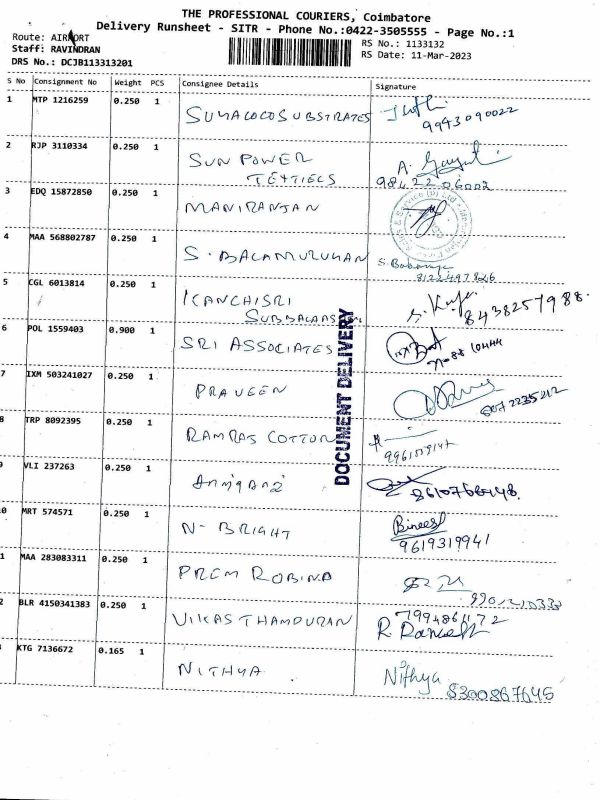 THE PROFESSIONAL COURIERS, Coimbatore
Delivery Runsheet - SITR - Phone No.:0422-3505555 - Page No.:1
Route: AIRPORT
Staff: RAVINDRAN
DRS No.: DCJB113313201
RS No.: 1133132
RS Date: 11-Mar-2023
S No Consignment No Weight PCS Consignee Details Signature
1 MTP 1216259 0.250 1 SUMALOCOSUBSTRATES
9943090022
2 RJP 3110334 0.250 1 SUN POWER
TEXTIELS
A. Gayatri
98422 06002
3 EDQ 15872850 0.250 1 MANIRANJAN
4 MAA 568802787 0.250 1 S. BALAMURUGAN
8122497826
5 CGL 6013814 0.250 1 KANCHISRI
S. Kuja
8438257988.
6 POL 1559403 0.900 1 SRI ASSOCIATES
7 IXM 503241027 0.250 1 PRAVEEN
8 TRP 8092395 0.250 1 RAMRAS COTTON
9 VLI 237263 0.250 1
8610768448.
10 MRT 574571 0.250 1 N- BRIGHT
Bineesh
9619319941
11 MAA 283083311 0.250 1 PREM ROBIND
12 BLR 4150341383 0.250 1 VIKAS THAMPURAN
7994861172
KTG 7136672 0.165 1 NITHYA
Nithya
8300867645
DOCUMENT DELIVERY